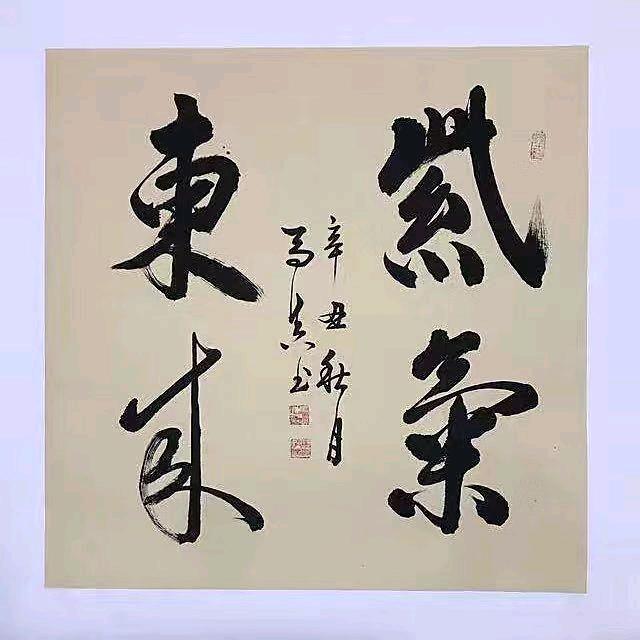 紫氣
東來
辛丑秋月
馬